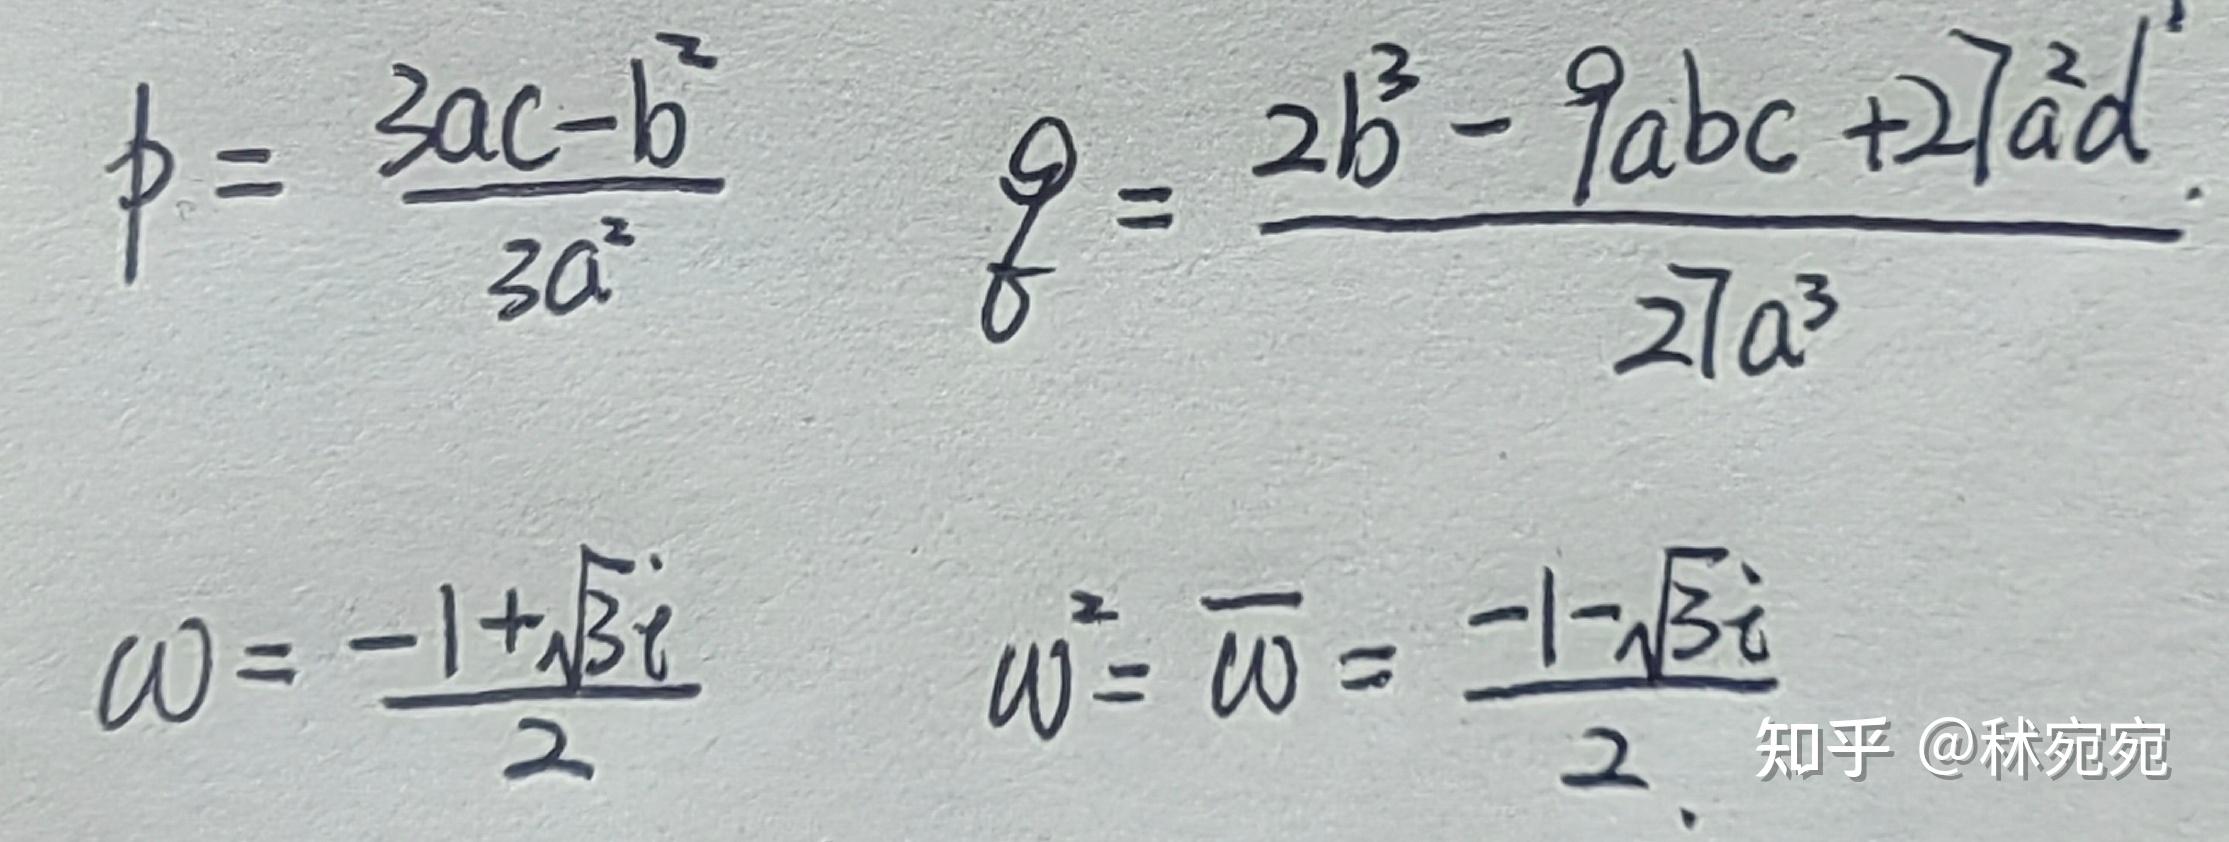 p = (3ac-b²)/(3a²)   q = (2b³ - 9abc + 27a²d)/(27a³).
ω = (-1+√3i)/2   ω² = ω̅ = (-1-√3i)/2.
知乎 @秫宛宛